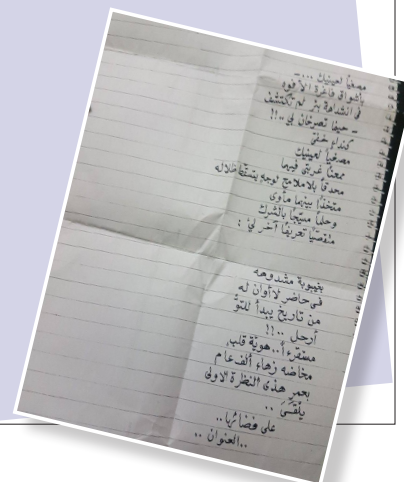 مصغيًا لعينيك ...ـ
بأشواق فاغرة الأفواه
في انشداهة بئر لم تكتشف
ـ حينما تصرخان بي ..!!
كنداءٍ خفيّ
مصغيًا لعينيك
ممعنًا غربتي فيها
محدقًا بلا ملامح لوجه يتصفح ظلاله
متخذًا بينهما مأوى
وحلمًا مسيّجًا بالشرك
متقصيًا تعريفًا آخر لي :
بغيبوبة مشدوهه
في حاضر لا أوان له
من تاريخ يبدأ للتوّ
أرحل ..!!
مستقرءا.. هويّة قلب
مخاضه زهاء ألف عام
بحمر هذي النظرة الأولى
يلقى ..
على قضائها..
..العنوان ..